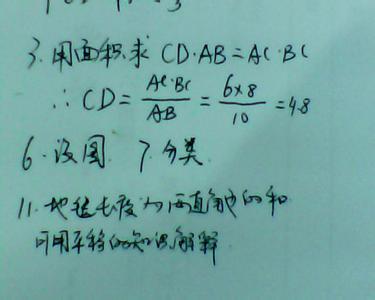 3. 用面积求 CD·AB=AC·BC
∴ CD=AC·BC/AB=6×8/10=4.8
6. 没图 7. 分类
11. 地毯长度为两直角边的和
可用平移的知识解释